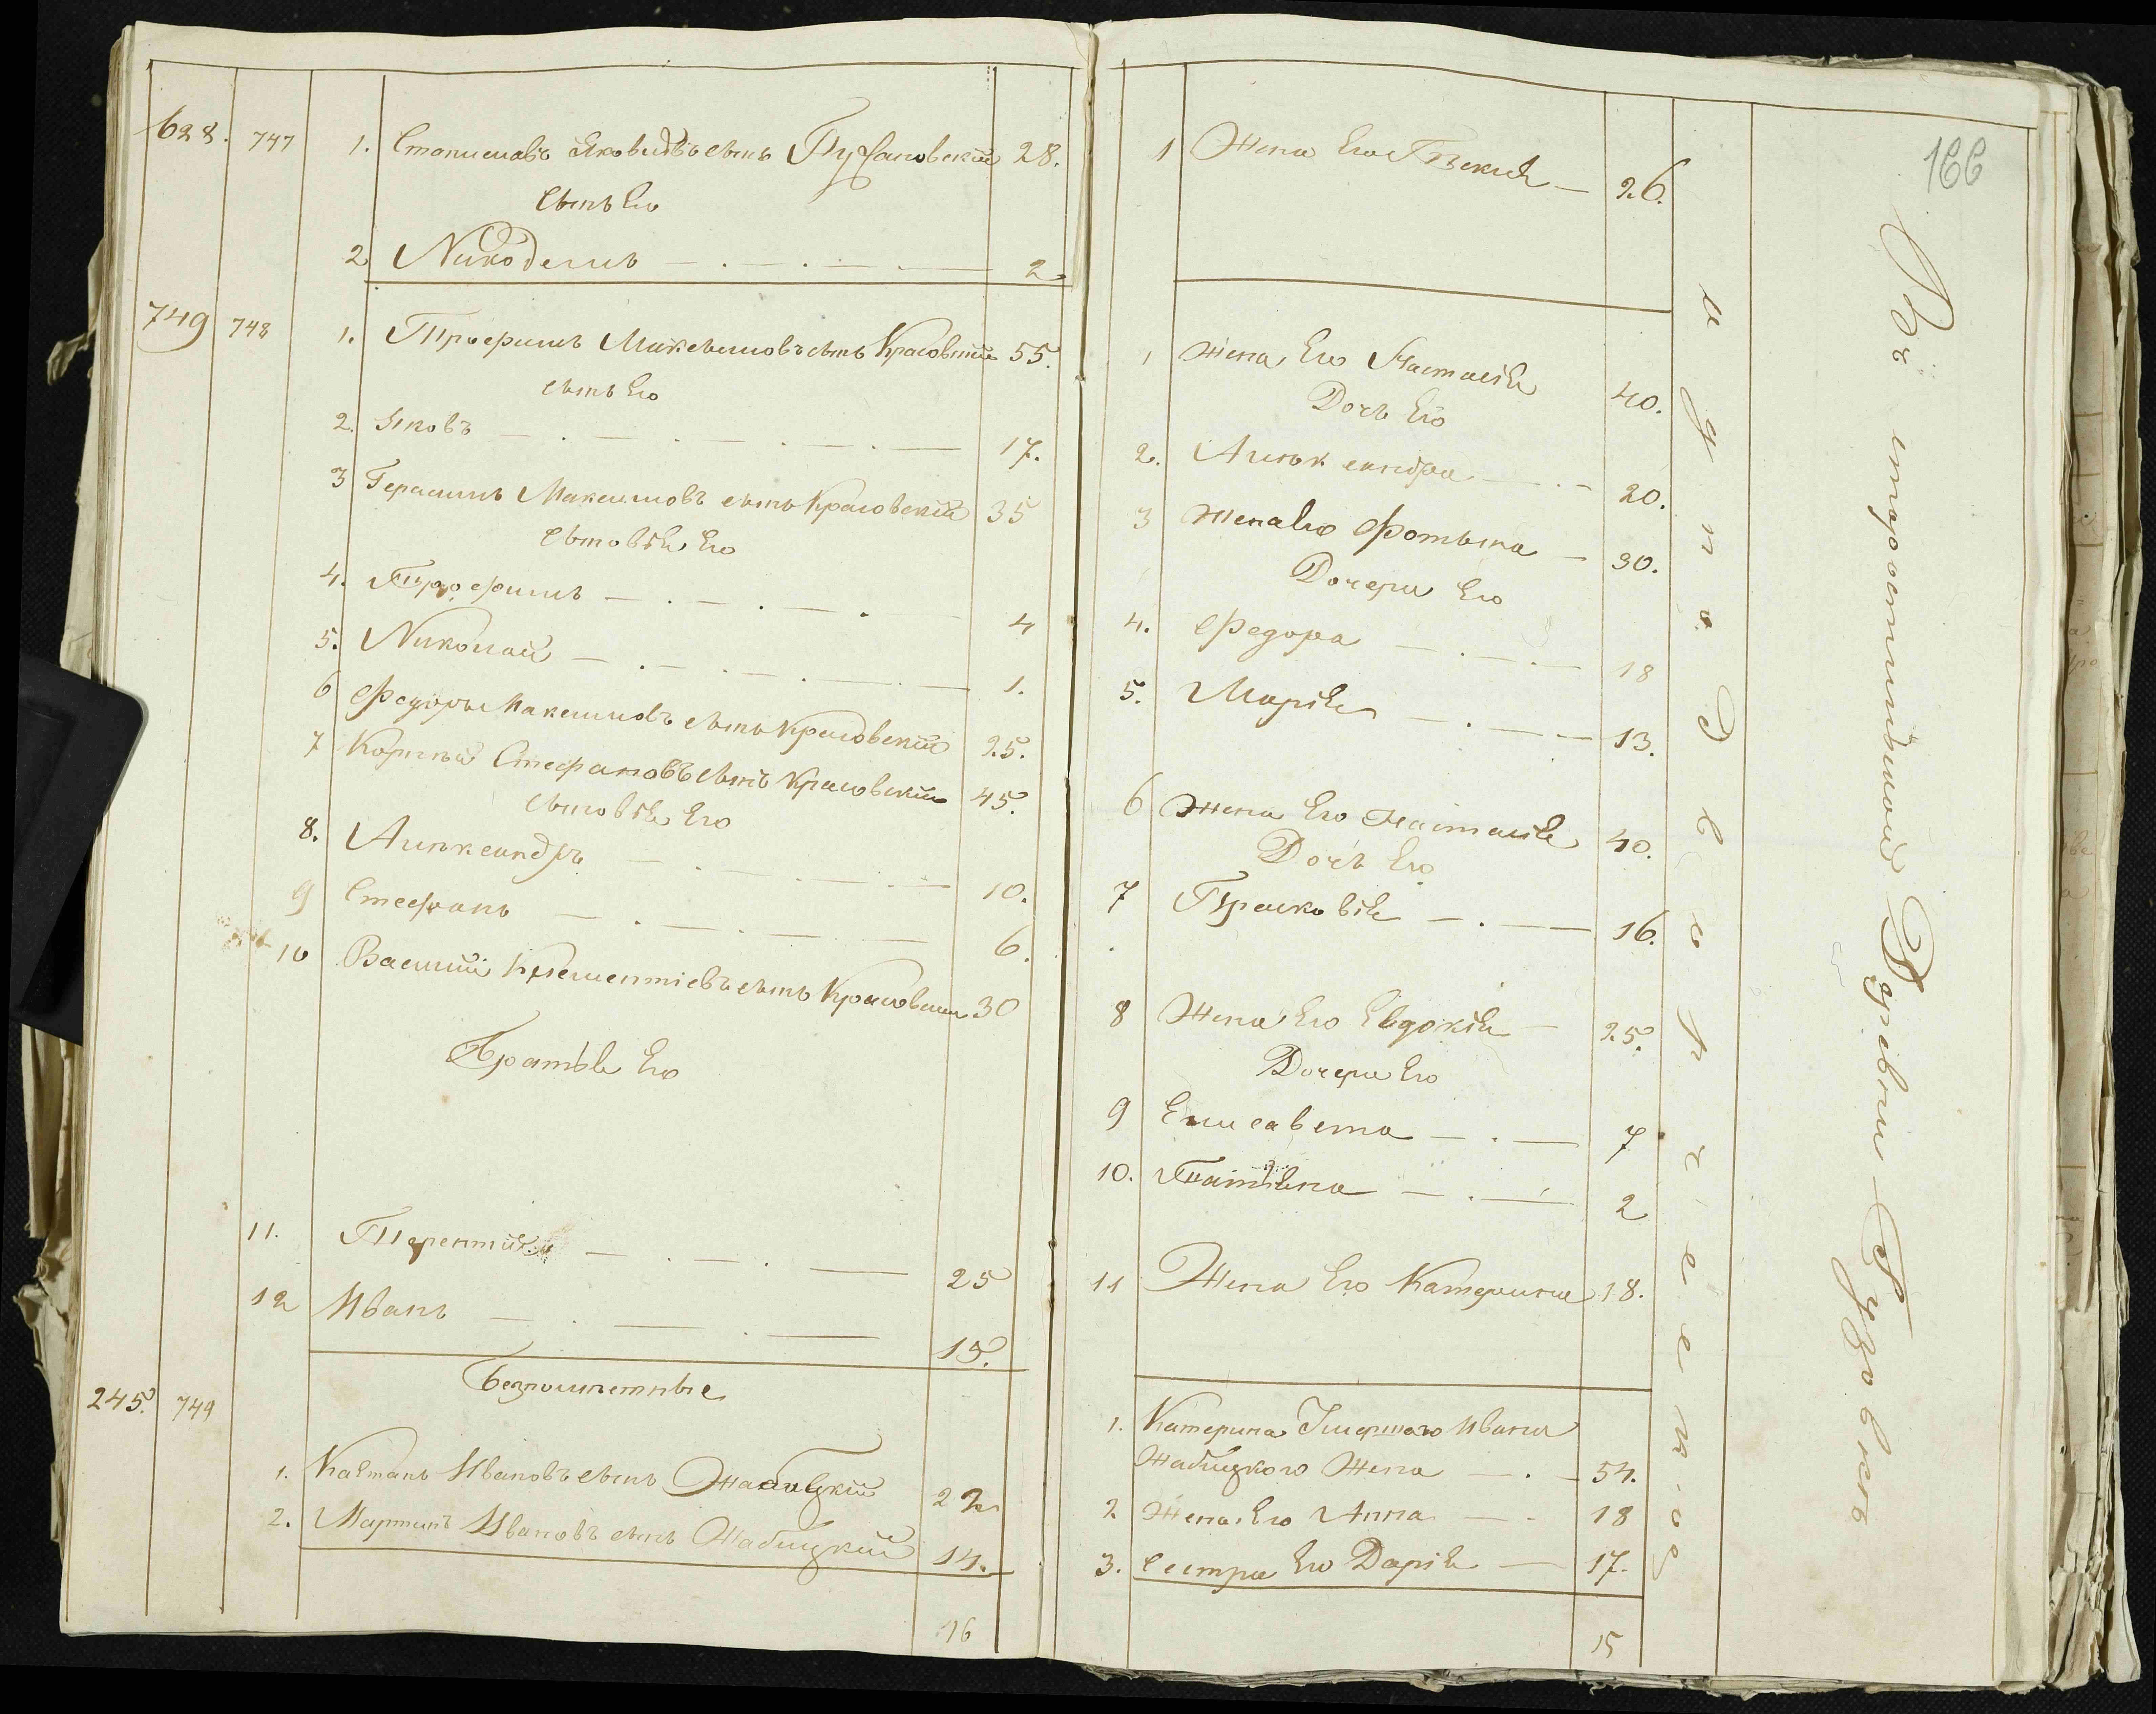 628. 747 1. Станиславъ Яковлевъ сынъ 28.
сынъ Его
2 Никодемъ — . — . — . — 2
749 748 1. Трофимъ Максимовъ сынъ Красовскій 55.
сынъ Его
2. Яковъ — . — . — . — . — 17.
3 Герасимъ Максимовъ сынъ Красовскій 35
сыновья Его
4. Трофимъ — . — . — . — 4
5. Николай — . — . — . — 1.
6 Федоръ Максимовъ сынъ Красовскій 25.
7 Корнѣй Стефановъ сынъ Красовскій 45.
сыновья Его
8. Александръ — . — . — . — 10.
9 Стефанъ — . — . — . — 6.
10 Василій Климентіевъ сынъ Красовскій 30
Братья Его
11. Терентій — . — . — 25
12 Иванъ — . — . — 15.
245. 749 Безпоместные
1. Каетанъ Ивановъ сынъ Жабицкій 22
2. Мартинъ Ивановъ сынъ Жабицкій 14.
16
166
1 Жена Его Текля — 26.
1 Жена Его Настасія 40.
Дочь Его
2. Александра — . — 20.
3 Жена Его Фотына — 30.
Дочери Его
4. Федора — . — . — 18
5. Марія — . — — 13.
6 Жена Его Настасія 40.
Дочь Его
7 Прасковія — . — 16.
8 Жена Его Евдокія — 25.
Дочери Его
9 Елисавета — . — 7.
10. Татіяна — . — 2
11 Жена Его Катерина 18.
1. Катерина Умершаго Ивана
Жабицкого Жена — . — 54.
2. Жена Его Анна — - 18
3. Сестра Его Дарія — 17.
15
Въ старостинской Деревни